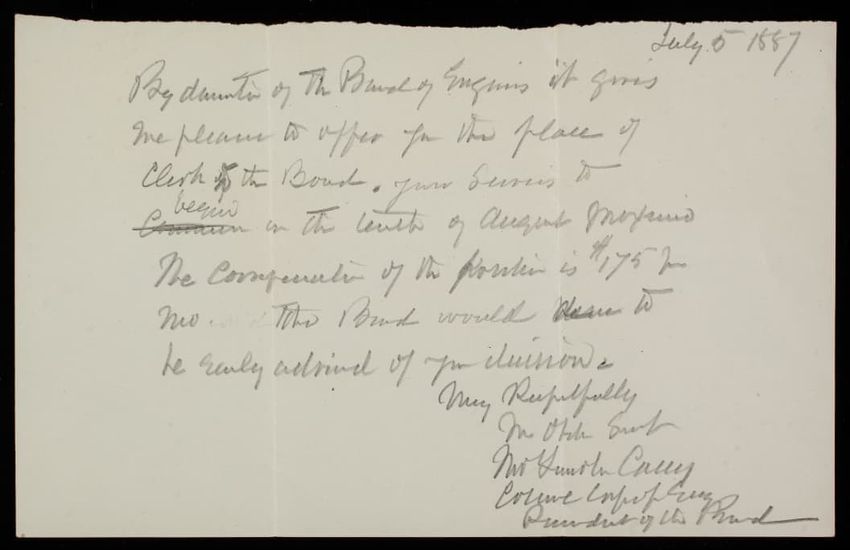 July 5 1887
By direction of the Board of Engineers it gives
me pleasure to offer you the place of
Clerk to the Board. your services to
begin
on the tenth of August proximo
The Compensation of the position is $175 per
mo. The Board would desire to
be early advised of your decision.
Very Respectfully
Yr Obdt Servt
Thos Lincoln Casey
Colonel Corps of Engrs
President of the Board